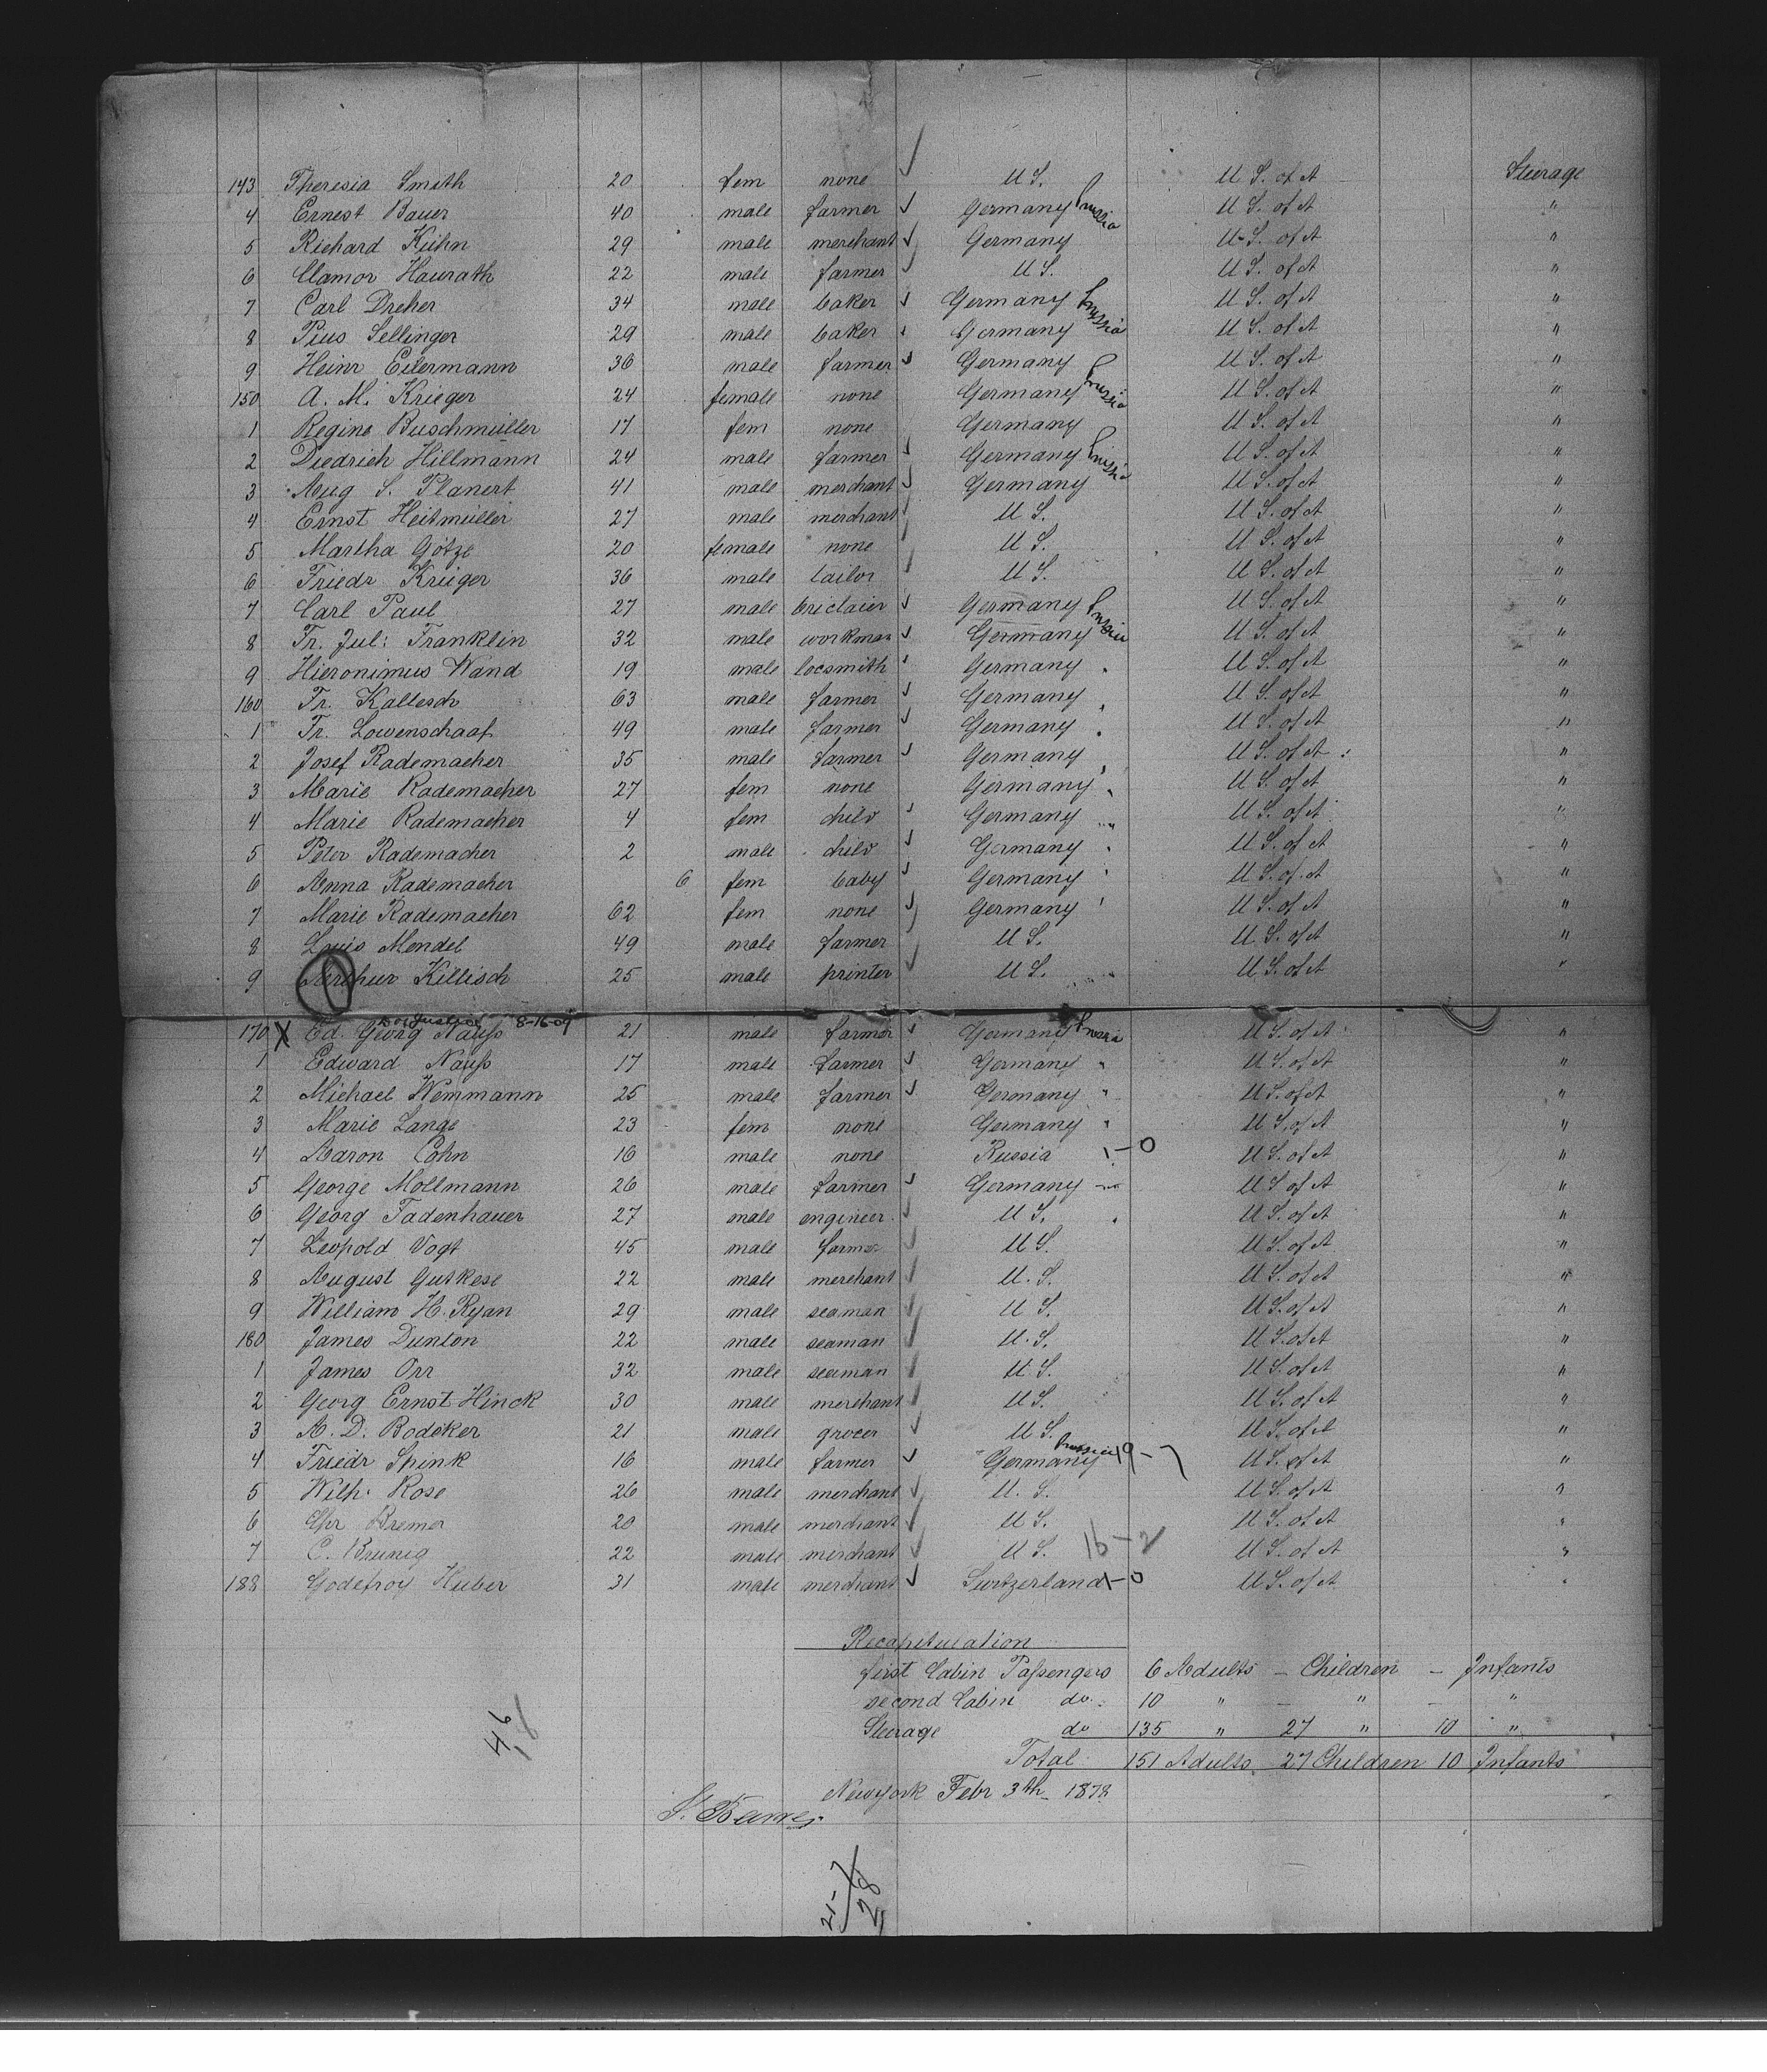 143 Theresia Smith 20 fem none U S. U S. of A Steerage
4 Ernest Bauer 40 male farmer Germany Prussia U S. of A "
5 Richard Kühn 29 male merchant Germany U S. of A "
6 Clamor Haurath 22 male farmer U S. U S. of A "
7 Carl Dreher 34 male baker Germany Prussia U S. of A "
8 Pius Sellinger 29 male baker Germany U S. of A "
9 Heinr Eilermann 36 male farmer Germany U S. of A "
150 A. M. Krieger 24 female none Germany Prussia U S. of A "
1 Regine Buschmüller 17 fem none Germany U S. of A "
2 Diedrich Hillmann 24 male farmer Germany Prussia U S. of A "
3 Aug S. Planert 41 male merchant Germany U S. of A "
4 Ernst Heitmüller 27 male merchant U S. U S. of A "
5 Martha Götze 20 female none U S. U S. of A "
6 Friedr Krüger 36 male tailor U S. U S. of A "
7 Carl Paul 27 male briclaier Germany Prussia U S. of A "
8 Fr. Jul: Franklin 32 male workman Germany U S. of A "
9 Hieronimus Wand 19 male locsmith Germany U S. of A "
160 Fr. Kallesch 63 male farmer Germany U S. of A "
1 Fr. Lowenschaaf 49 male farmer Germany U S. of A "
2 Josef Rademacher 35 male farmer Germany U S. of A "
3 Marie Rademacher 27 fem none Germany U S. of A "
4 Marie Rademacher 4 fem child Germany U S. of A "
5 Peter Rademacher 2 male child Germany U S. of A "
6 Anna Rademacher 6 fem baby Germany U S. of A "
7 Marie Rademacher 62 fem none Germany U S. of A "
8 Louis Mendel 49 male farmer U S. U S. of A "
9 Arthur Killisch 25 male printer U S. U S. of A "
8-16-09
170 X Ed. Georg Nauss 21 male farmer Germany Prussia U S. of A "
1 Edward Nauss 17 male farmer Germany " U S. of A "
2 Michael Wemmann 25 male farmer Germany " U S. of A "
3 Marie Lange 23 fem none Germany " U S. of A "
4 Aaron Cohn 16 male none Russia 1-0 U S. of A "
5 George Mollmann 26 male farmer Germany U S of A "
6 Georg Fadenhauer 27 male engineer U S. U S. of A "
7 Leopold Vogt 45 male farmer U S. U S. of A "
8 August Gutkese 22 male merchant U. S. U S. of A "
9 William H. Ryan 29 male seaman U S. U S. of A "
180 James Dunton 22 male seaman U. S. U S. of A "
1 James Orr 32 male seaman U S. U S. of A "
2 Georg Ernst Hinck 30 male merchant U S. U S. of A "
3 A. D. Bodeker 21 male grocer U S. U S. of A "
4 Friedr Spink 16 male farmer Germany Prussia 19-7 U S. of A "
5 Wilh. Rose 26 male merchant U. S. U S. of A "
6 Chr Bremer 20 male merchant U S. U S. of A "
7 C. Brunig 22 male merchant U S. 16-2 U S. of A "
188 Godefroy Huber 31 male merchant Switzerland 1-0 U S. of A "
Recapitulation
first Cabin Passengers 6 Adults - Children - Infants
second Cabin do. 10 " - " - "
Steerage do 135 " 27 " 10 "
Total 151 Adults 27 Children 10 Infants
New york Febr 3th 1878
46
21-7
28